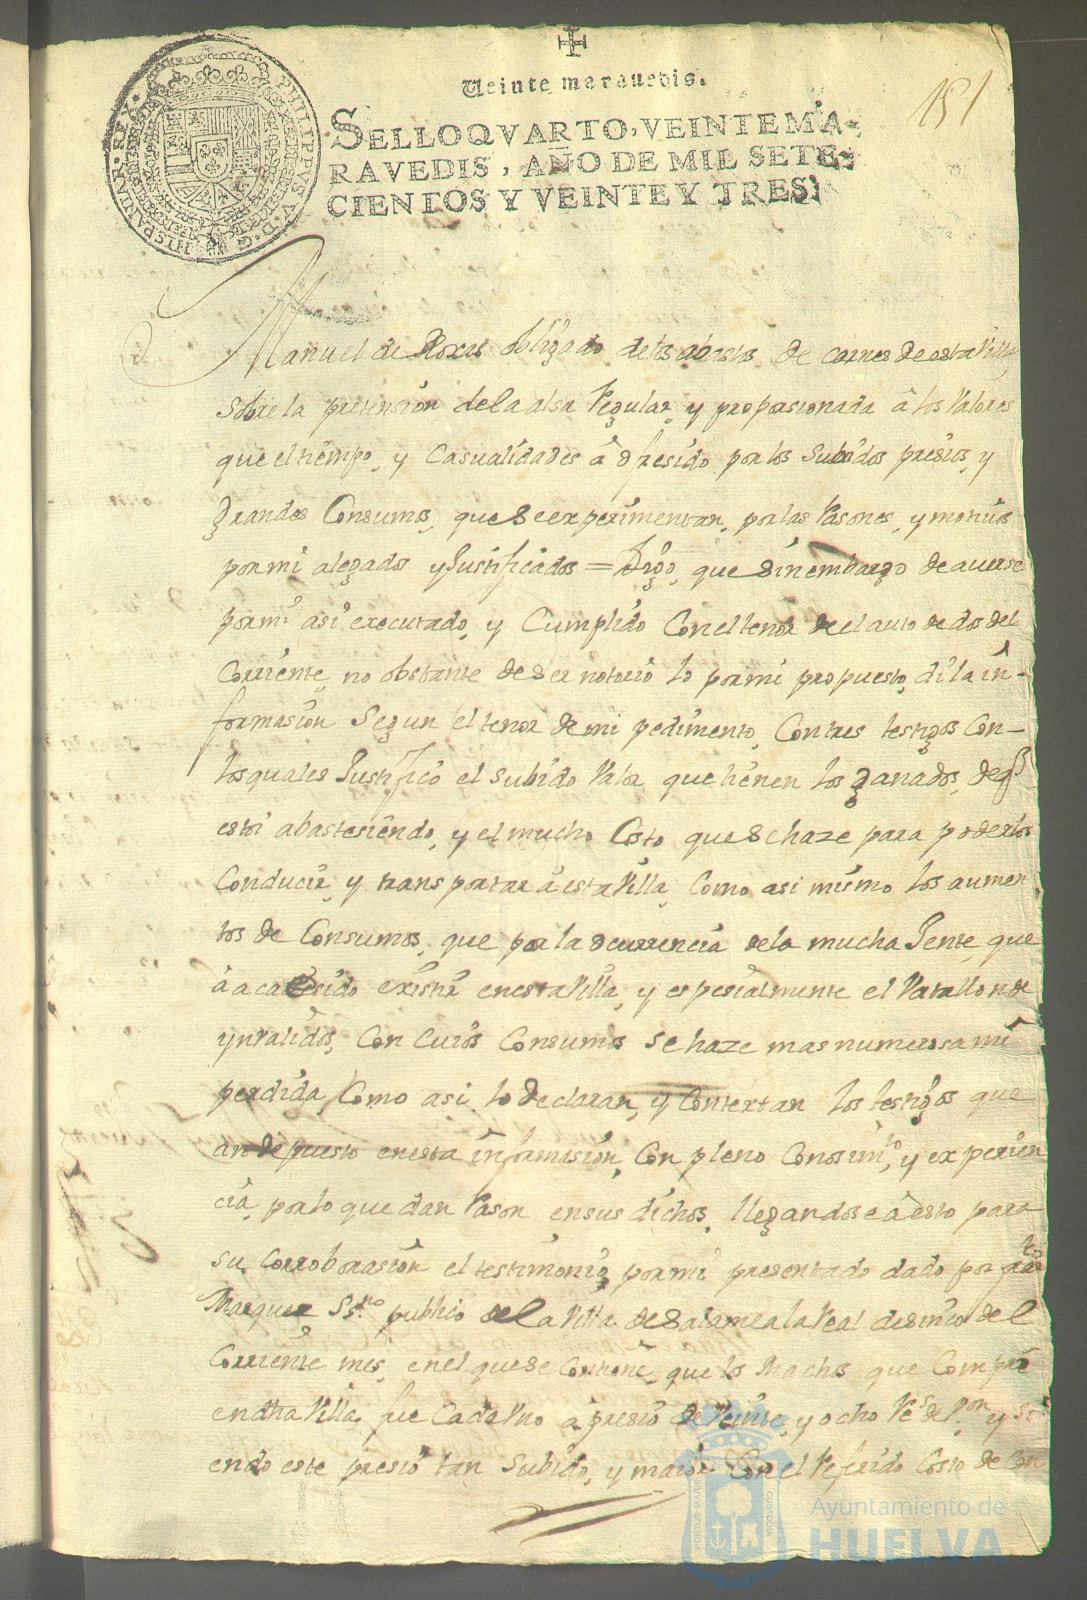 151
Veinte maravedis.
SELLO QVARTO, VEINTE MA-
RAVEDIS, AÑO DE MIL SETE-
CIENTOS Y VEINTE Y TRES.
PHILIPPVS V. D. G. HISPANIAR. REX.
Manuel de Roxas obligado de los abastos de carnes de esta Villa
sobre la pretension de la alsa regular, y proporsionada â los valores
que el tiempo, y Casualidades â ofresido por los subidos presios, y
grandes Consumos, que se experimentan, por las rasones, y motivos
por mi alegados y Justificados = Digo, que sin embargo de averse
por mi asi executado, y Cumplido Con el tenor de el auto de dos del
Corriente, no obstante de ser notorio lo por mi propuesto, di la in-
formasion segun el tenor de mi pedimento, Con tres testigos Con
los quales Justifico el subido valor que tienen los ganados, de q
estoi abasteciendo, y el mucho Costo que se haze para poderlos
Conducir y transportar â esta Villa, Como asi mismo los aumen
tos de Consumos, que por la ocurrencia de la mucha Jente, que
â acaesido existir en esta Villa, y espesialmente el Vatallon de
ynvalidos, Con cuios Consumos se haze mas numerosa mi
perdida, Como asi lo declaran, y Contextan los testigos que
an depuesto en esta informasion, Con pleno Conosimto, y experien
cia, por lo que dan rason en sus dichos, llegandose â esto para
su Corroborasion el testimonio, por mi presentado dado por
Marquez Ssno publico de la Villa de Salamea la Real de sinco del
Corriente mes, en el que se Contiene, que los Machos que Compre
en dha Villa, fue Cada Vno a presio de Veinte, y ocho Rs de Von y si
endo este presio tan subido, y maior Con el referido Costo de Con
Ayuntamiento de
HUELVA